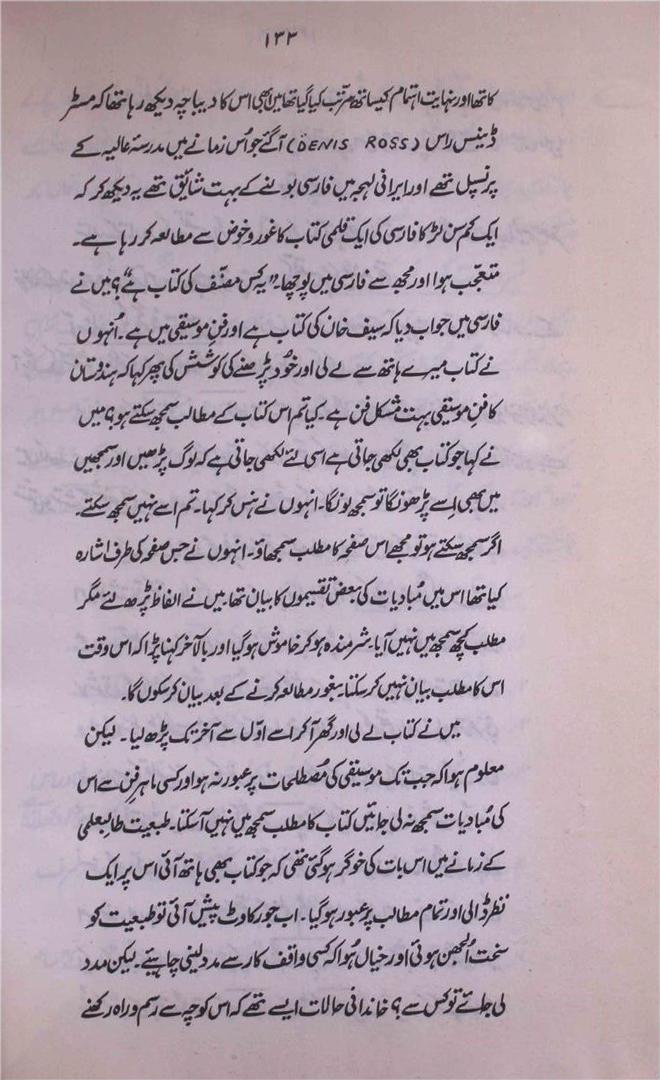 ۱۳۲
کا تھا اور نہایت اہتمام کیساتھ مرتب کیا گیا تھا میں ابھی اس کا دیباچہ دیکھ رہا تھا کہ مسٹر
ڈینس راس (DENIS ROSS) آگئے جو اُس زمانے میں مدرسۂ عالیہ کے
پرنسپل تھے اور ایرانی لہجہ میں فارسی بولنے کے بہت شایق تھے یہ دیکھ کر کہ
ایک کم سن لڑکا فارسی کی ایک قلمی کتاب کا غور و خوض سے مطالعہ کر رہا ہے۔
متعجب ہوا اور مجھ سے فارسی میں پوچھا۔ "یہ کس مصنّف کی کتاب ہے"؟ میں نے
فارسی میں جواب دیا کہ سیف خان کی کتاب ہے اور فنِ موسیقی میں ہے۔ اُنہوں
نے کتاب میرے ہاتھ سے لے لی اور خود پڑھنے کی کوشش کی پھر کہا کہ ہندوستان
کا فنِ موسیقی بہت مشکل فن ہے۔ کیا تم اس کتاب کے مطالب سمجھ سکتے ہو؟ میں
نے کہا جو کتاب بھی لکھی جاتی ہے اسی لئے لکھی جاتی ہے کہ لوگ پڑھیں اور سمجھیں
میں بھی اِسے پڑھونگا تو سمجھ لونگا۔ انہوں نے ہنس کر کہا۔ تم اسے نہیں سمجھ سکتے۔
اگر سمجھ سکتے ہو تو مجھے اس صفحہ کا مطلب سمجھاؤ۔ انہوں نے جس صفحہ کی طرف اشارہ
کیا تھا اس میں مُبادیات کی بعض تقسیموں کا بیان تھا۔ میں نے الفاظ پڑھ لئے مگر
مطلب کچھ سمجھ میں نہیں آیا۔ شرمندہ ہو کر خاموش ہو گیا اور بالآخر کہنا پڑا کہ اس وقت
اس کا مطلب بیان نہیں کر سکتا۔ بغور مطالعہ کرنے کے بعد بیان کر سکوں گا۔
میں نے کتاب لے لی اور گھر آ کر اسے اوّل سے آخر تک پڑھ لیا۔ لیکن
معلوم ہوا کہ جب تک موسیقی کی مُصطلحات پر عبور نہ ہو اور کسی ماہرِ فن سے اس
کی مُبادیات سمجھ نہ لی جائیں کتاب کا مطلب سمجھ میں نہیں آ سکتا۔ طبیعت طالبعلمی
کے زمانے میں اس بات کی خوگر ہو گئی تھی کہ جو کتاب بھی ہاتھ آئی اس پر ایک
نظر ڈالی اور تمام مطالب پر عبور ہو گیا۔ اب جو رکاوٹ پیش آئی تو طبیعت کو
سخت اُلجھن ہوئی اور خیال ہُوا کہ کسی واقف کار سے مدد لینی چاہیئے۔ لیکن مدد
لی جائے تو کس سے؟ خاندانی حالات ایسے تھے کہ اس کوچہ سے رسم و راہ رکھنے